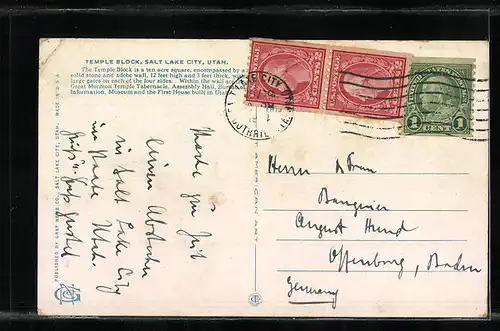 TEMPLE BLOCK, SALT LAKE CITY, UTAH.
The Temple Block is a ten acre square, encompassed by a
solid stone and adobe wall, 12 feet high and 3 feet thick, with
large gates on each of the four sides. Within the wall are
Great Mormon Temple Tabernacle, Assembly Hall, Bureau
Information, Museum and the First House built in Utah.
MADE IN U.S.A.
PUBLISHED BY GRAY NEWS CO., SALT LAKE CITY, UTAH.
AMERICAN ART
LAKE CITY
1
GUTHRIE
2 CENTS 2
1 CENT 1
Mache zur Zeit
einen Abstecher
in Salt Lake City
im Staate Utah.
Herrn & Frau
Banquier
August Hund
Offenburg, Baden
Germany